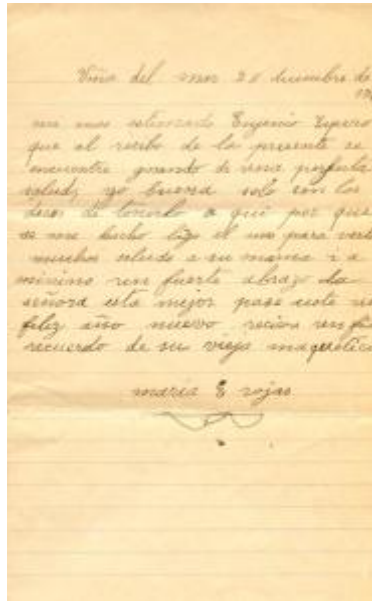 Viña del mar 20 diciembre de
mi mas estimado Eugenio Espero
que al recibo de la presente se
encuentre gosando de una perfecta
salud, yo buena solo con los
deceos de tenerlo a qui por que
se me hecho largo el mes para verlo
muchos saludo a su mama i a
minino un fuerte abrazo la
señora esta mejor pase uste un
feliz año nuevo reciva un
recuerdo de su vieja
maria E rojas